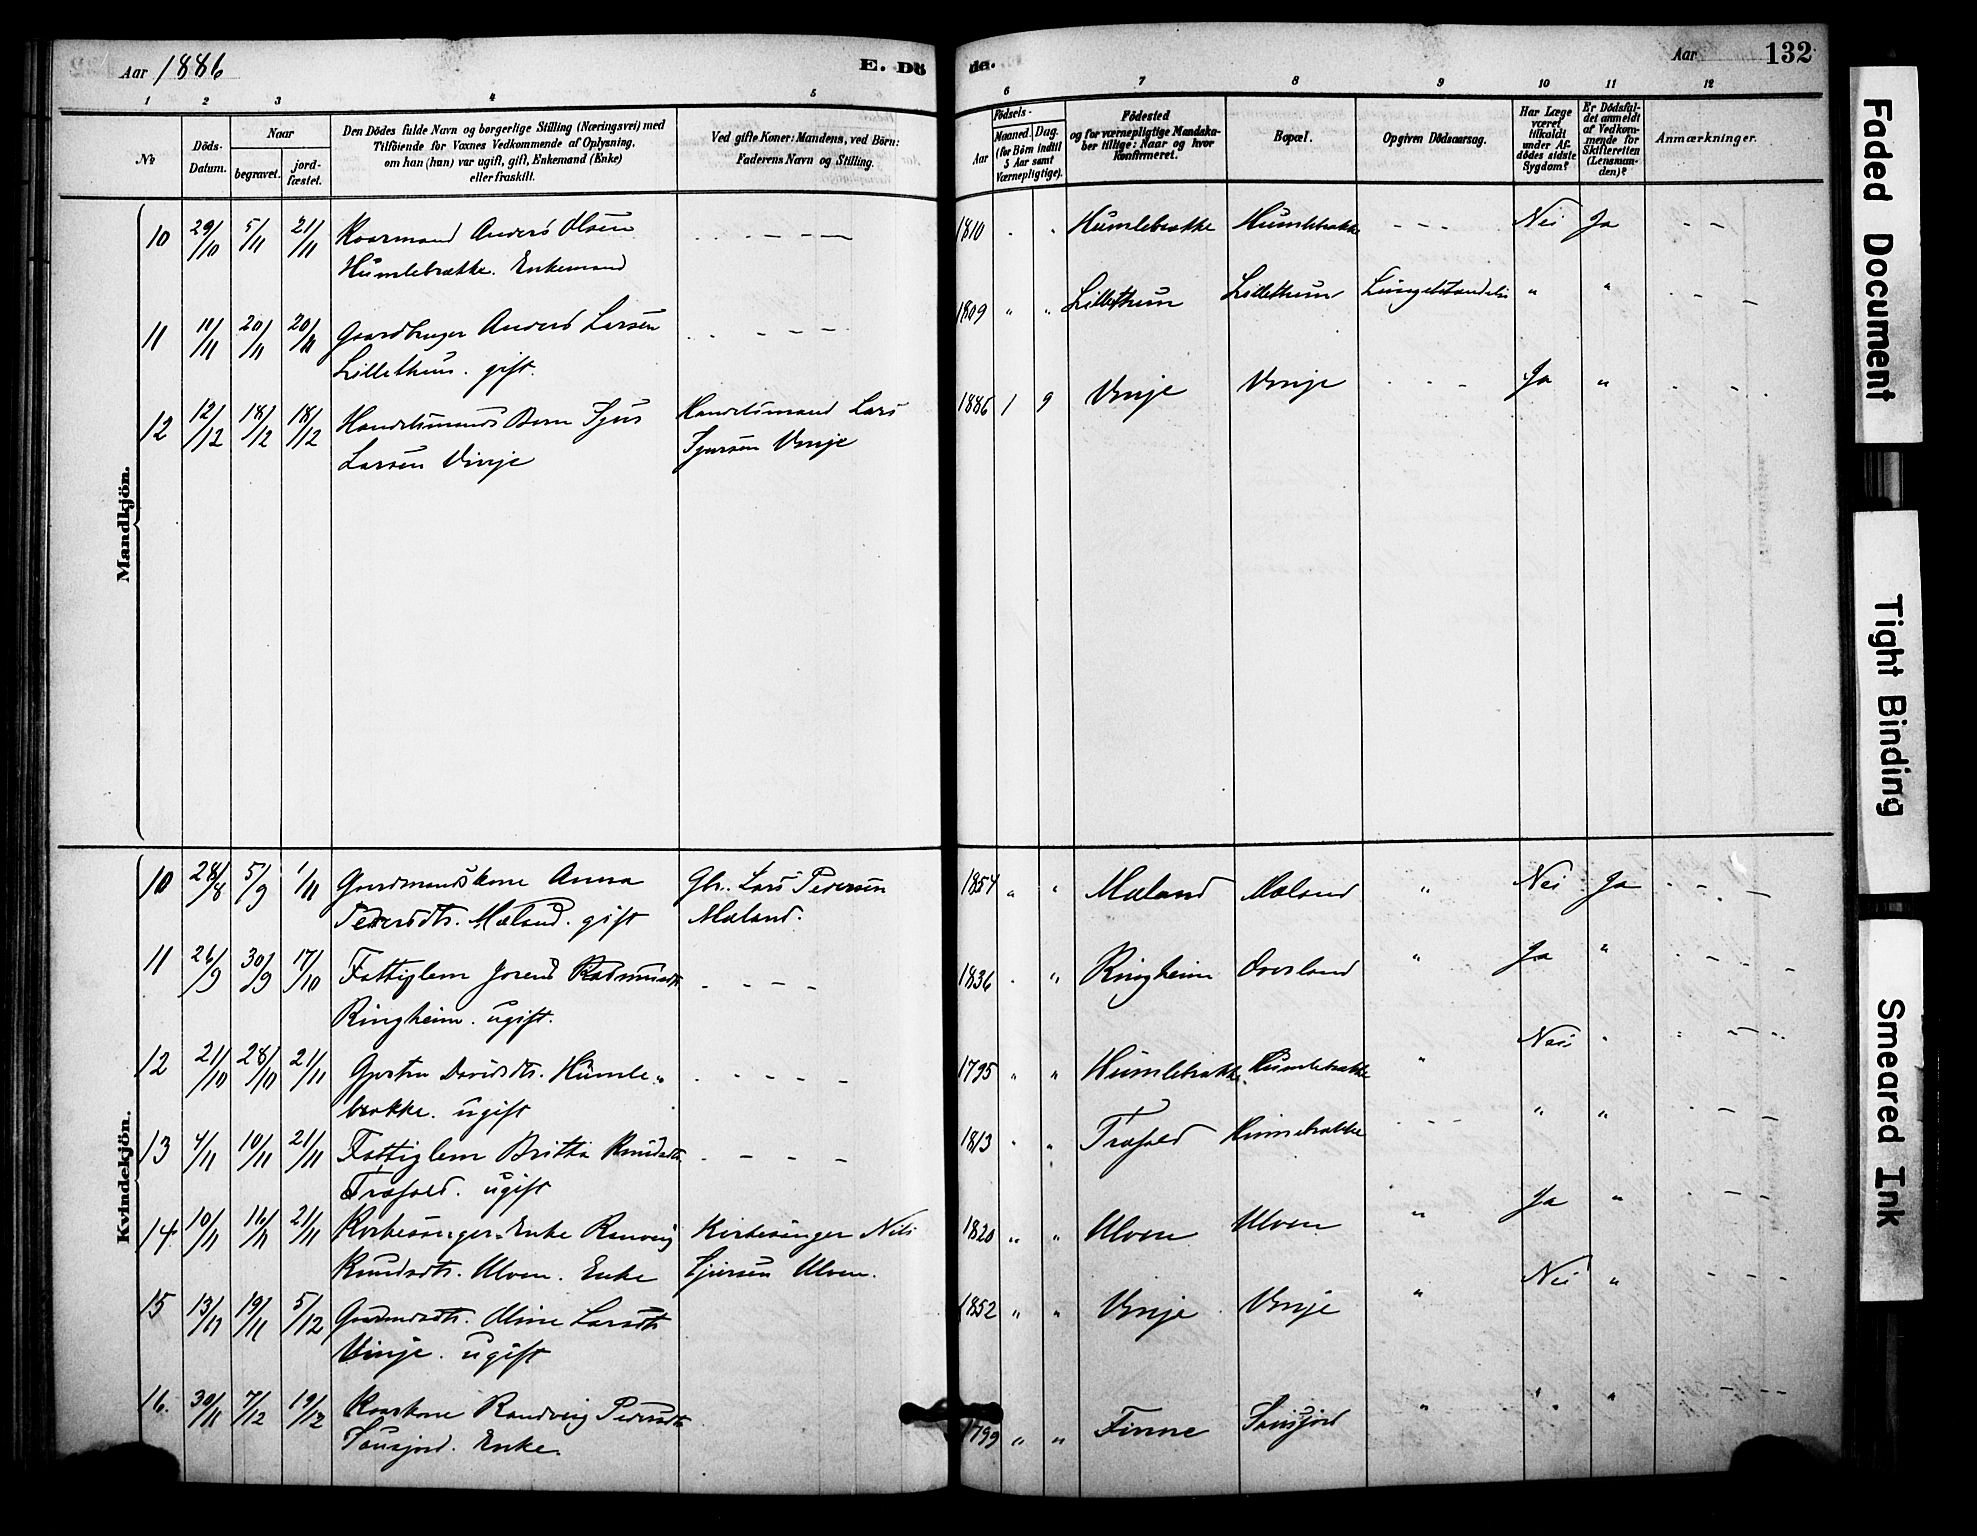 Aar 1886
E. Dö
de.
Aar 132
1 2 3 4 5 6 7 8 9 10 11 12
No
Döds-Datum.
Naar
begravet.
jord-fæstet.
Den Dödes fulde Navn og borgerlige Stilling (Næringsvei) med
Tilföiende for Voxnes Vedkommende af Oplysning,
om han (hun) var ugift, gift, Enkemand (Enke)
eller fraskilt.
Ved gifte Koner: Mandens, ved Börn:
Faderens Navn og Stilling.
Födsels-
Aar
Maaned. Dag.
(for Börn indtil
5 Aar samt
Værnepligtige).
Födested
og for værnepligtige Mandska-
ber tillige: Naar og hvor
konfirmeret.
Bopæl.
Opgiven Dödsaarsag.
Har Læge
været
tilkaldt
under Af-
dödes sidste
Sygdom?
Er Dödsfal-
det anmeldt
af Vedkom-
mende for
Skifteretten
(Lensman-
den)?
Anmærkninger.
Mandkjön.
10 29/10 5/11 21/11 Kaarmand Anders Olsen - - - - 1810 " " Humlebrække Humlebrække - - - Nei Ja - -
Humlebrække. Enkemand
11 11/11 20/11 20/11 Gaardbruger Anders Larsen - - - - 1809 " " Lillethun Lillethun " " - - -
Lillethun. gift.
12 12/12 18/12 18/12 Handelsmands Barn Sjur Handelsmand Lars 1886 1 9 Vinje Vinje - - - Ja " - -
Larsen Vinje Sjursen Vinje
Kvindekjön.
10 28/8 5/9 1/11 Gaardmandskone Anna Gbr. Lars Pedersen 1854 " " Mæland Mæland " Nei Ja - - - -
Pedersdtr. Mæland. gift Mæland.
11 26/9 30/9 17/10 Fattiglem Rasmusdtr - - - - 1836 " " Ringheim " Ja " - - - -
Ringheim. ugift.
12 21/10 28/10 21/11 Davidsdtr. Humle- - - - - 1795 " " Humlebrække Humlebrække " Nei " - - -
brække. ugift
13 4/11 10/11 21/11 Fattiglem Britta Knudsdtr. - - - - 1813 " " - - - " " - - -
ugift
14 10/11 16/11 21/11 Kirkesanger-Enke Ranveig Kirkesanger Nils 1820 " " Ulven Ulven " Ja " - - -
Knudsdtr. Ulven. Enke Ulven.
15 13/11 19/11 5/12 Larsdtr 1852 " " Vinje Vinje " Nei " - - - -
Vinje. ugift
16. 30/11 7/12 19/12 Kaarkone Randveig Pedersdtr 1799 " " Finne " " " - - -
Enke.
Faded Document
Tight Binding
Smeared Ink